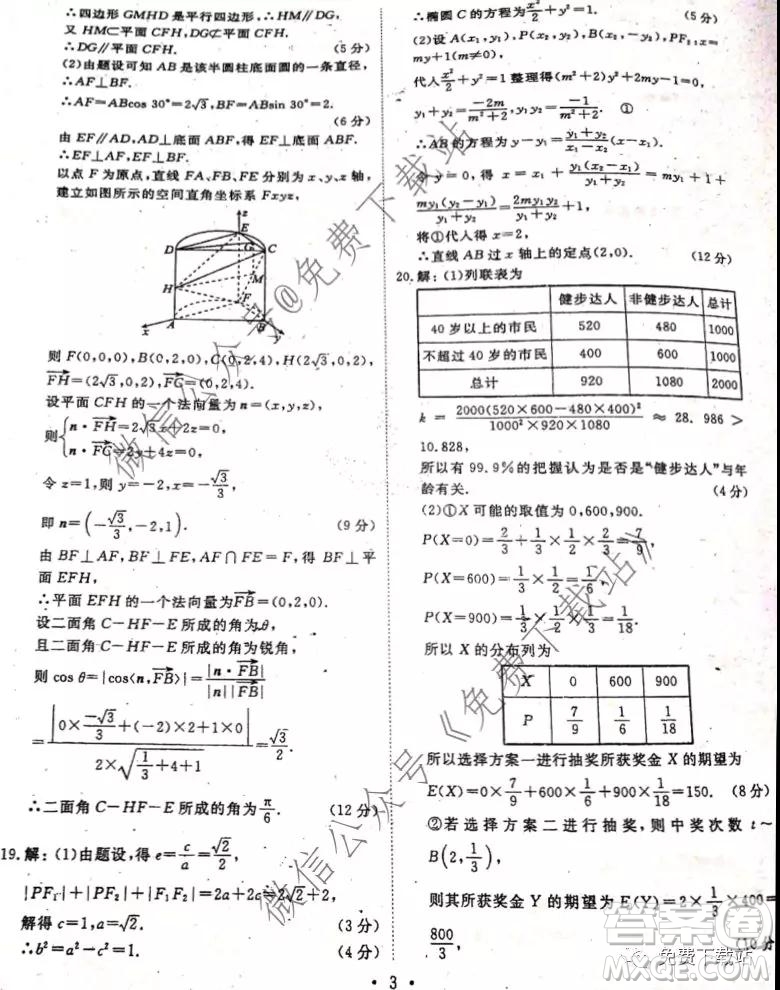 ∴四边形 GMHD 是平行四边形,∴HM∥DG,
又 HM⊂平面 CFH,DG⊄平面 CFH,
∴DG∥平面 CFH. (5 分)
(2)由题设可知 AB 是该半圆柱底面圆的一条直径,
∴AF⊥BF.
∴AF=ABcos 30°=2√3,BF=ABsin 30°=2.
(6 分)
由 EF∥AD,AD⊥底面 ABF,得 EF⊥底面 ABF,
∴EF⊥AF,EF⊥BF.
以点 F 为原点,直线 FA、FB、FE 分别为 x、y、z 轴,
建立如图所示的空间直角坐标系 Fxyz,
z
E
D G C
M
H
F
A B
x y
则 F(0,0,0),B(0,2,0),C(0,2,4),H(2√3,0,2),
FH=(2√3,0,2),FC=(0,2,4).
设平面 CFH 的一个法向量为 n=(x,y,z),
则{n·FH=2√3x+2z=0,
n·FC=2y+4z=0,
令 z=1,则 y=-2,x=-√3/3,
即 n=(-√3/3,-2,1). (9 分)
由 BF⊥AF,BF⊥FE,AF∩FE=F,得 BF⊥平
面 EFH,
∴平面 EFH 的一个法向量为FB=(0,2,0).
设二面角 C-HF-E 所成的角为 θ,
且二面角 C-HF-E 为锐角,
则 cos θ=|cos⟨n,FB⟩|=|n·FB|/|n||FB|
=|0×-√3/3+(-2)×2+1×0|/2×√(1/3+4+1)=√3/2.
∴二面角 C-HF-E 所成的角为π/6. (12 分)
19.解:(1)由题设,得 e=c/a=√2/2,
|PF₁|+|PF₂|+|F₁F₂|=2a+2c=2√2+2,
解得 c=1,a=√2. (3 分)
∴b²=a²-c²=1. (4 分)
∴椭圆 C 的方程为x²/2+y²=1. (5 分)
(2)设 A(x₁,y₁),P(x₂,y₂),B(x₁,-y₁),PF₂:x=
my+1(m≠0),
代入x²/2+y²=1 整理得(m²+2)y²+2my-1=0,
y₁+y₂=-2m/m²+2,y₁y₂=-1/m²+2. ①
∴AB 的方程为 y-y₁=y₁+y₂/x₁-x₂(x-x₁),
令 y=0,得 x=x₁+y₁(x₂-x₁)/y₁+y₂=my₁+1+
my₁(y₂-y₁)/y₁+y₂=2my₁y₂/y₁+y₂+1,
将①代入得 x=2,
∴直线 AB 过 x 轴上的定点(2,0). (12 分)
20.解:(1)列联表为
健步达人 非健步达人 总计
40 岁以上的市民 520 480 1000
不超过 40 岁的市民 400 600 1000
总计 920 1080 2000
k=2000(520×600-480×400)²/1000²×920×1080≈28.986>
10.828,
所以有 99.9%的把握认为是否是“健步达人”与年
龄有关. (4 分)
(2)①X 可能的取值为 0,600,900.
P(X=0)=2/3+1/3×1/3=7/9,
P(X=600)=1/3×1/2=1/6,
P(X=900)=1/3×1/2×1/3=1/18.
所以 X 的分布列为
X 0 600 900
P 7/9 1/6 1/18
所以选择方案一进行抽奖所获奖金 X 的期望为
E(X)=0×7/9+600×1/6+900×1/18=150. (8 分)
②若选择方案二进行抽奖,则中奖次数 t~
B(2,1/3),
则其所获奖金 Y 的期望为 E(Y)=2×1/3×400=
800/3, (10 分
· 3 ·
微信公众号@免费下载站
微信公众号《免费下载站》
答案圈
免费下载站